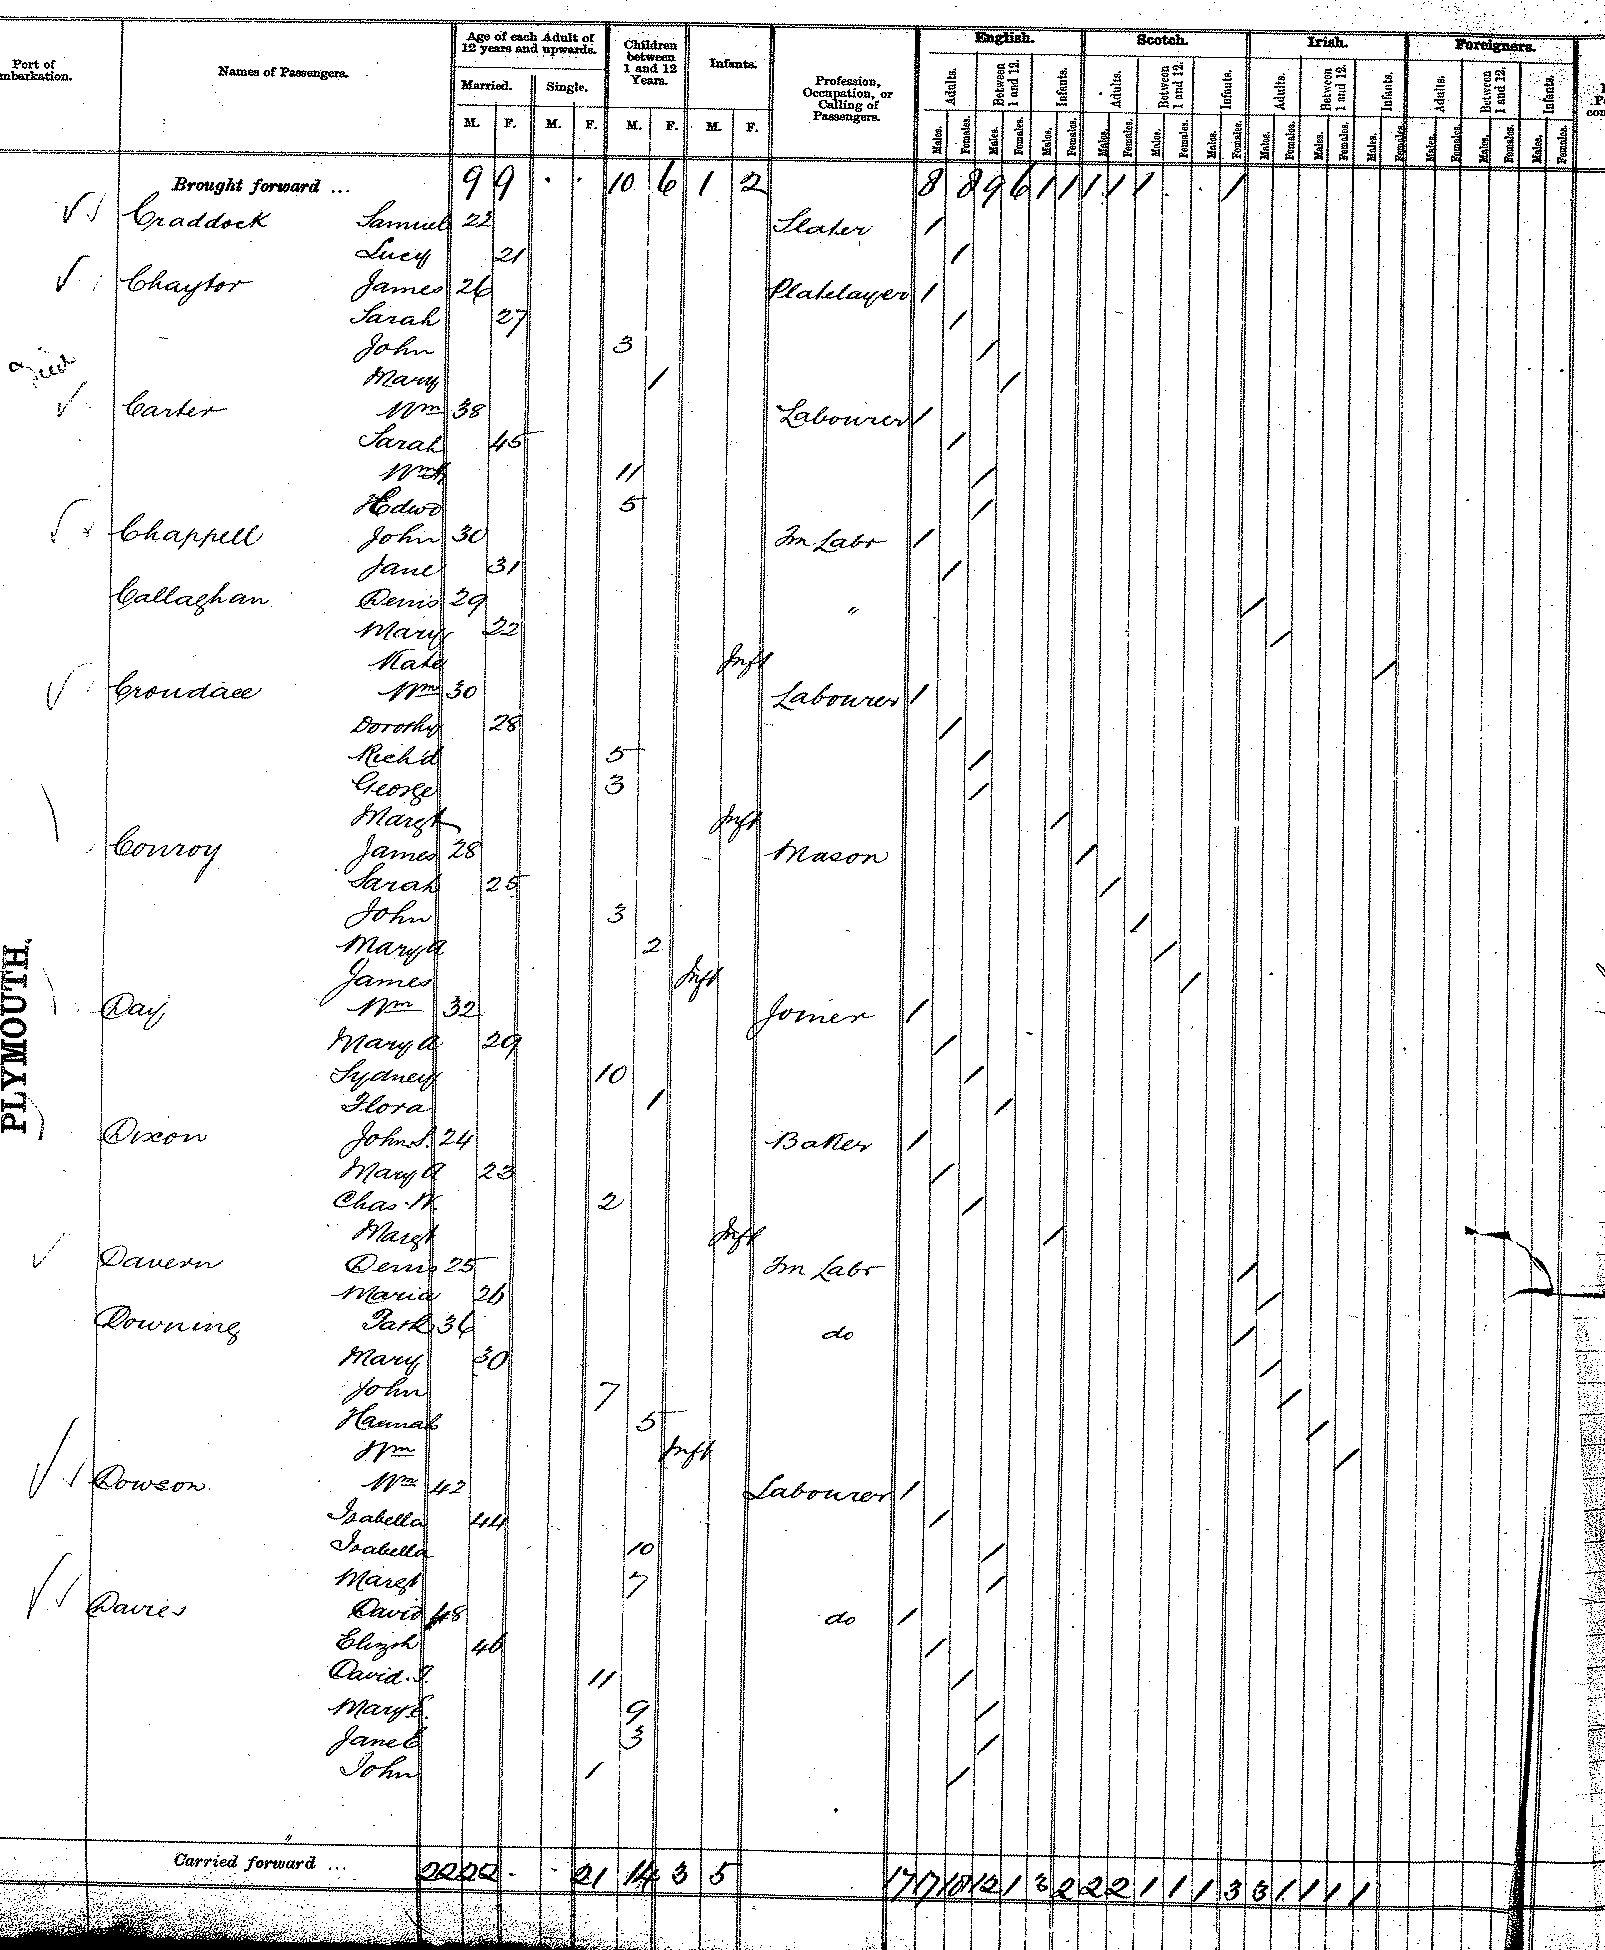 Port of Embarkation.
Names of Passengers.
Age of each Adult of 12 years and upwards.
Married.
Single.
Children between 1 and 12 Years.
Infants.
Profession, Occupation, or Calling of Passengers.
English.
Scotch.
Irish.
Foreigners.
Adults. Between 1 and 12. Infants. Adults. Between 1 and 12. Infants. Adults. Between 1 and 12. Infants. Adults. Between 1 and 12. Infants.
M. F. M. F. M. F. M. F.
Males. Females. Males. Females. Males. Females. Males. Females. Males. Females. Males. Females. Males. Females. Males. Females. Males. Females. Males. Females. Males. Females. Males. Females.
Brought forward ... 9 9 . . 10 6 1 2 8 8 9 6 1 1 1 1 1 . . 1
Craddock Samuel 22 Slater /
Lucy 21 /
Chaytor James 26 Platelayer /
Sarah 27 /
John 3 /
Mary 1 /
Carter Wm 38 Labourer /
Sarah 45 /
11 /
Edwd 5 /
Chappell John 30 Fm Labr /
Jane 31 /
Callaghan Denis 29 " /
Mary 22 /
Kate Inft /
Croudace Wm 30 Labourer /
Dorothy 28 /
Richd 5 /
George 3 /
Margt Inft /
Conroy James 28 Mason /
Sarah 25 /
John 3 /
Mary A 2 /
James Inft /
Day Wm 32 Joiner /
Mary A 29 /
Sydney 10 /
Flora 1 /
Dixon John S. 24 Baker /
Mary A 23 /
Chas. W. 2 /
Margt Inft /
Davern Denis 25 Fm Labr /
Maria 26 /
Downing Patk 36 do /
Mary 30 /
John 7 /
Hannah 5 /
Wm Inft /
Dowson Wm 42 Labourer /
Isabella 44 /
Isabella 10 /
Margt 7 /
Davies David 48 do /
Elizth 46 /
David. J. 11 /
Mary E. 9 /
Jane E 3 /
John 1 /
PLYMOUTH.
Carried forward ... 22 22 . . 21 14 3 5 17 17 18 12 1 3 2 2 2 1 1 1 3 3 1 1 1 1